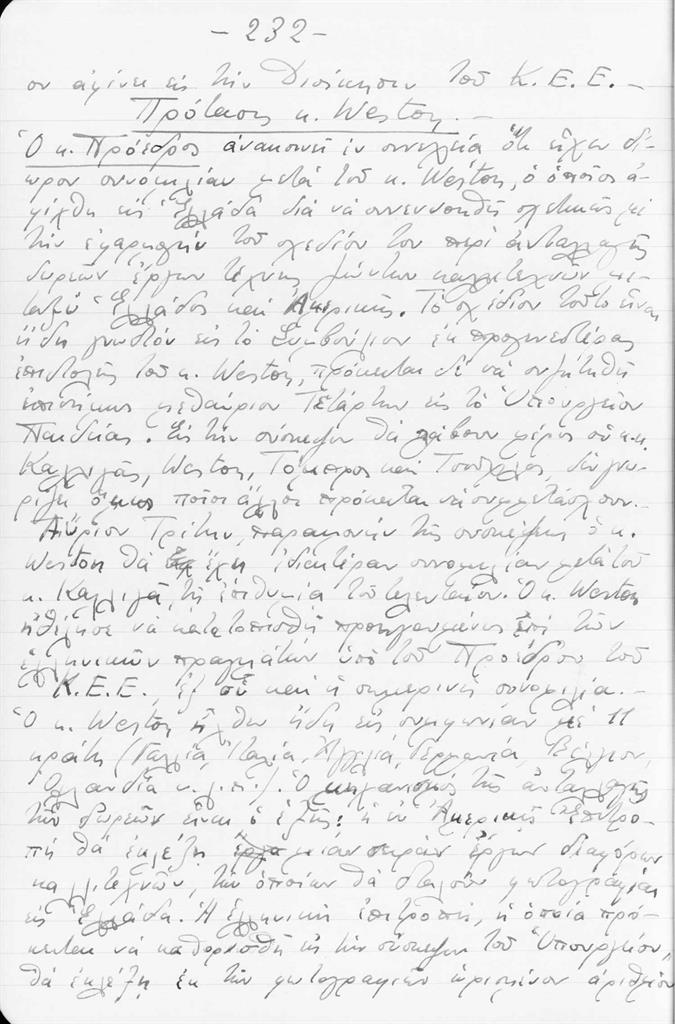 - 232 -
ον ἀφίνει εἰς τὴν Διοίκησιν τοῦ Κ. Ε. Ε. -
Πρότασις κ. Weston. -
Ὁ κ. Πρόεδρος ἀνακοινοῖ ἐν συνεχείᾳ ὅτι εἶχεν δί-
ωρον συνομιλίαν μετὰ τοῦ κ. Weston, ὁ ὁποῖος ἀ-
φίχθη εἰς Ἑλλάδα διὰ νὰ συνεννοηθῇ σχετικῶς μὲ
τὴν ἐφαρμογὴν τοῦ σχεδίου του περὶ ἀνταλλαγῆς
δωρεῶν ἔργων τέχνης ζώντων καλλιτεχνῶν με-
ταξὺ Ἑλλάδος καὶ Ἀμερικῆς. Τὸ σχέδιον τοῦτο εἶναι
ἤδη γνωστὸν εἰς τὸ Συμβούλιον ἐκ προγενεστέρας
ἐπιστολῆς τοῦ κ. Weston, πρόκειται δὲ νὰ συζητηθῇ
ἐπισήμως μεθαύριον Τετάρτην εἰς τὸ Ὑπουργεῖον
Παιδείας. Εἰς τὴν σύσκεψιν θὰ λάβουν μέρος οἱ κ.κ.
Καλλιγᾶς, Weston, Τόμπρος καὶ δὲν γνω-
ρίζει ὅμως ποῖοι ἄλλοι πρόκειται νὰ συμμετάσχουν. -
Αὔριον Τρίτην, παραμονὴν τῆς συσκέψεως ὁ κ.
Weston θὰ ἔχῃ ἰδιαιτέραν συνομιλίαν μετὰ τοῦ
κ. Καλλιγᾶ, τῇ ἐπιθυμίᾳ τοῦ τελευταίου. Ὁ κ. Weston
ἠθέλησε νὰ κατατοπισθῇ προηγουμένως ἐπὶ τῶν
ἑλληνικῶν πραγμάτων ὑπὸ τοῦ Προέδρου τοῦ
Κ.Ε.Ε., ἐξ οὗ καὶ ἡ σημερινὴ συνομιλία. -
Ὁ κ. Weston ἦλθεν ἤδη εἰς συμφωνίαν μὲ 11
κράτη (Γαλλία, Ἰταλία, Ἀγγλία, Γερμανία, Βέλγιον,
Ὁλλανδία κ.λ.π.). Ὁ μηχανισμὸς τῆς ἀνταλλαγῆς
τῶν δωρεῶν εἶναι ὁ ἑξῆς: ἡ ἐν Ἀμερικῇ Ἐπιτρο-
πὴ θὰ ἐκλέξῃ μίαν σειρὰν ἔργων διαφόρων
καλλιτεχνῶν, τῶν ὁποίων θὰ σταλοῦν φωτογραφίαι
εἰς Ἑλλάδα. Ἡ ἑλληνικὴ ἐπιτροπή, ἡ ὁποία πρό-
κειται νὰ καθορισθῇ εἰς τὴν σύσκεψιν τοῦ Ὑπουργείου,
θὰ ἐκλέξῃ ἐκ τῶν φωτογραφιῶν ὡρισμένον ἀριθμὸν